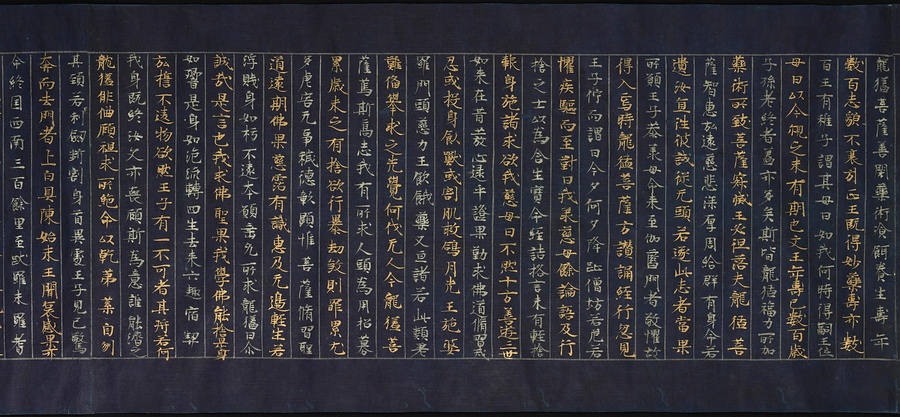 龍猛菩薩善閑藥術飡餌養生壽年
數百志貌不衰引正王既得妙藥壽亦數
百王有稚子謂其母曰如我何時得嗣王位
母曰以今觀之未有期也父王年壽已數百歲
子孫老終者蓋亦多矣斯皆龍猛福力所加
藥術所致菩薩寂滅王必殂落夫龍猛菩
薩智慧弘遠慈悲深厚周給群有身命若
遺汝宜往彼試從乞頭若遂此志當果
所願王子恭承母命來至伽藍門者敬懼故
得入焉時龍猛菩薩方讚誦經行忽見
王子佇而謂曰今夕何夕降趾僧坊若危若
懼疾驅而至對曰我承慈母餘論語及行
捨之士以為含生寶命經誥格言未有輕捨
報身施諸求欲我慈母曰不然十方善逝三世
如來在昔發心逮乎證果勤求佛道修習戒
忍或投身飼獸或割肌救鴿月光王施婆
羅門頭慈力王飲餓藥叉血諸若此類羌
難備舉求之先覺何代無人今龍猛菩
薩篤斯高志我有所求人頭為用招募
累歲未之有捨欲行暴劫殺則罪累尤
多虐害無辜穢德彰顯惟菩薩修習聖
道遠期佛果慈霑有識惠及無邊輕生若
浮賤身如朽不違本願垂允所求龍猛曰俞
誠哉是言也我求佛聖果我學佛能捨是身
如響是身如泡流轉四生去來六趣宿契
弘誓不違物欲然王子有一不可者其將若何
我身既終汝父亦喪顧斯為意誰能濟之
龍猛俳佪顧視求所絕命以乾茅葉自刎
其頸若利劍斷割身首異處王子見已驚
奔而去門者上白具陳始末王聞哀感果亦
命終國西南三百餘里至